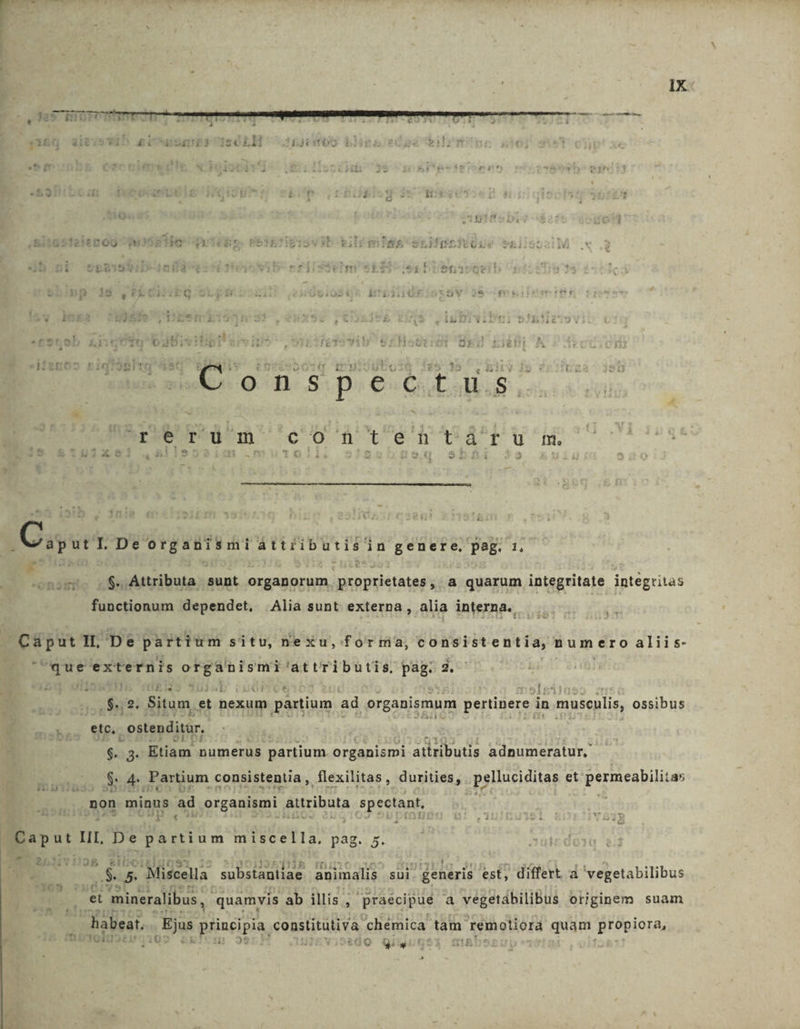 IX
Conspectus
rerum contentarum.
Caput I. De organismi attributis in genere. pag. 1.
§. Attributa sunt organorum proprietates, a quarum integritate integritas
functionum dependet. Alia sunt externa, alia interna.
Caput II. De partium situ, nexu, forma, consistentia, numero aliis-
que externis organismi attributis. pag. 2.
§. 2. Situm et nexum partium ad organismum pertinere in musculis, ossibus
etc. ostenditur.
§. 3. Etiam numerus partium organismi attributis adnumeratur.
§. 4. Partium consistentia, flexilitas, durities, pelluciditas et permeabilitas
non minus ad organismi attributa spectant.
Caput III. De partium miscella. pag. 5.
§. 5. Miscella substantiae animalis sui generis est, differt a vegetabilibus
et mineralibus, quamvis ab illis, praecipue a vegetabilibus originem suam
habeat. Ejus principia constitutiva chemica tam remotiora quam propiora,